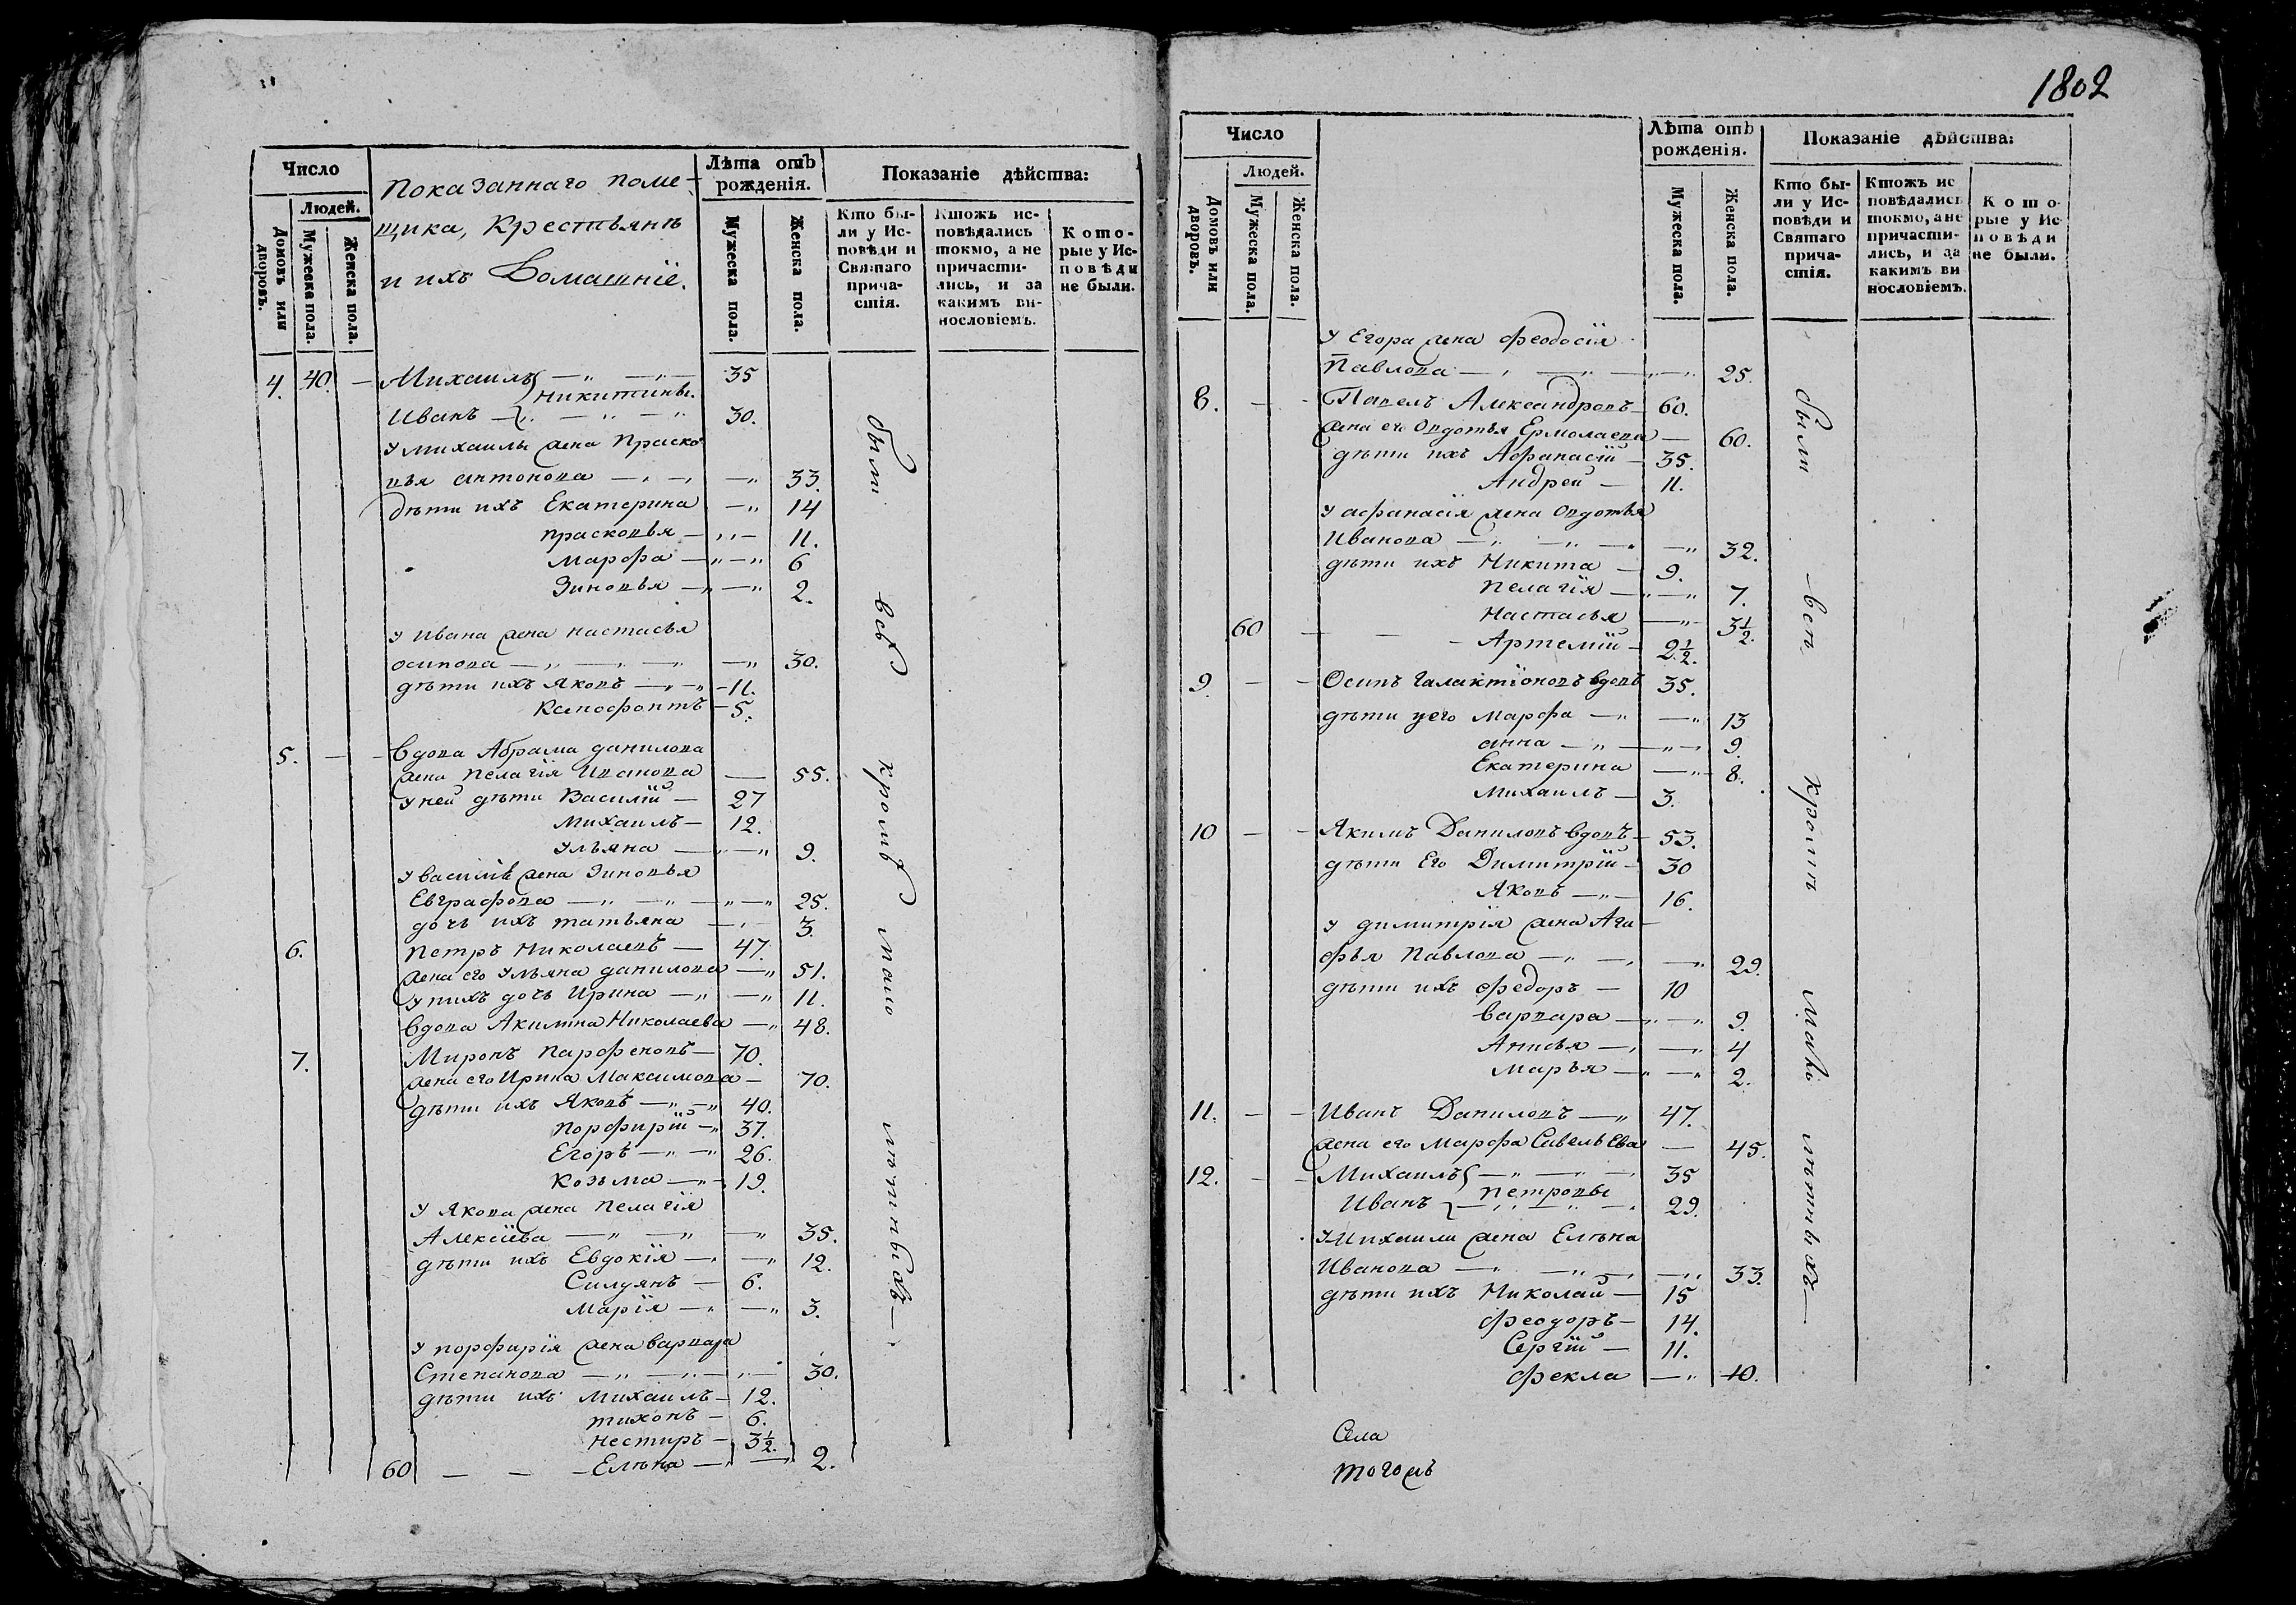 Число
Людей.
Домовъ или дворовъ.
Мужеска пола.
Женска пола.
Показаннаго поме-
щика, Крестьянъ
и ихъ Домашніе.
Лѣта отъ рожденія.
Мужеска пола.
Женска пола.
Показаніе дѣйства:
Кто бы-
ли у Ис-
повѣди и
Святаго
прича-
стія.
Ктожъ ис-
повѣдались
токмо, а не
причасти-
лись, и за
какимъ ви-
нословіемъ.
Кото-
рые у Ис-
повѣди
не были.
4. 40. — Михаилъ — 35
Никитины.
Иванъ — 30.
У михаилы жена Праско
вья антонова — 33.
дѣти ихъ Екатерина — 14
прасковья — 11.
Марфа — 6
Зиновья — 2.
У Ивана жена настасья
осипова — 30.
дѣти ихъ Яковъ — 11.
Ксенофонтъ — 5.
5. — Вдова Абрама данилова
жена Пелагія Иванова — 55.
У ней дѣти Василій — 27
Михаилъ — 12.
Ульяна — 9.
У василія жена Зиновья
Евграфова — 25.
дочь ихъ татьяна — 3.
6. Петръ Николаевъ — 47.
жена его Ульяна данилова — 51.
У нихъ дочь Ирина — 11.
Вдова Акилина Николаева — 48.
7. Миронъ Парфеновъ — 70.
жена его Ирина Максимова — 70.
дѣти ихъ Яковъ — 40.
Порфирій — 37.
Егоръ — 26.
Козьма — 19.
У Якова жена Пелагія
Алексіева — 35.
дѣти ихъ Евдокія — 12.
Силуянъ — 6.
Марія — 3.
У порфирія жена варвара
Степанова — 30.
дѣти ихъ Михаилъ — 12.
тихонъ — 6.
Нестиръ — 3 1/2.
60 — — — Елѣна — 2.
были всѣ кромѣ мало лѣтныхъ —
1802
Число
Людей.
Домовъ или дворовъ.
Мужеска пола.
Женска пола.
Лѣта отъ
рожденія.
Мужеска пола.
Женска пола.
Показаніе дѣйства:
Кто бы-
ли у Ис-
повѣди и
Святаго
прича-
стія.
Ктожъ ис
повѣдались
токмо, а не
причасти-
лись, и за
какимъ ви
нословіемъ.
Кото-
рые у Ис
повѣди
не были.
У Егора жена Феодосія
Павлова — 25.
8. — Павелъ Александровъ — 60.
жена его Овдотья Ермолаева — 60.
дѣти ихъ Афанасій — 35.
Андрей — 11.
У афанасія жена Овдотья
Иванова — 32.
дѣти ихъ Никита — 9.
Пелагія — 7.
Настасья — 3 1/2.
60 — — — Артемій — 2 1/2.
9. — — Осипъ Галактіоновъ вдовъ 35.
дѣти у его Марфа — 13
анна — 9.
Екатерина — 8.
Михаилъ — 3.
10 — — Якимъ Даниловъ вдовъ — 53.
дѣти Его Димитрій — 30
Яковъ — 16.
У димитрія жена Ага-
фья Павлова — 29.
дѣти ихъ федоръ — 10
варвара — 9.
Анисья — 4
Марья — 2.
11. — — Иванъ Даниловъ — 47.
жена его Марфа Савельева — 45.
12. — — Михаилъ — 35
Петровы
Иванъ — 29.
У Михаила жена Елѣна
Иванова — 33.
дѣти ихъ Николай — 15
феодоръ — 14.
Сергій — 11.
фекла — 10.
были всѣ кромѣ мало лѣтныхъ —
Села
тогожъ